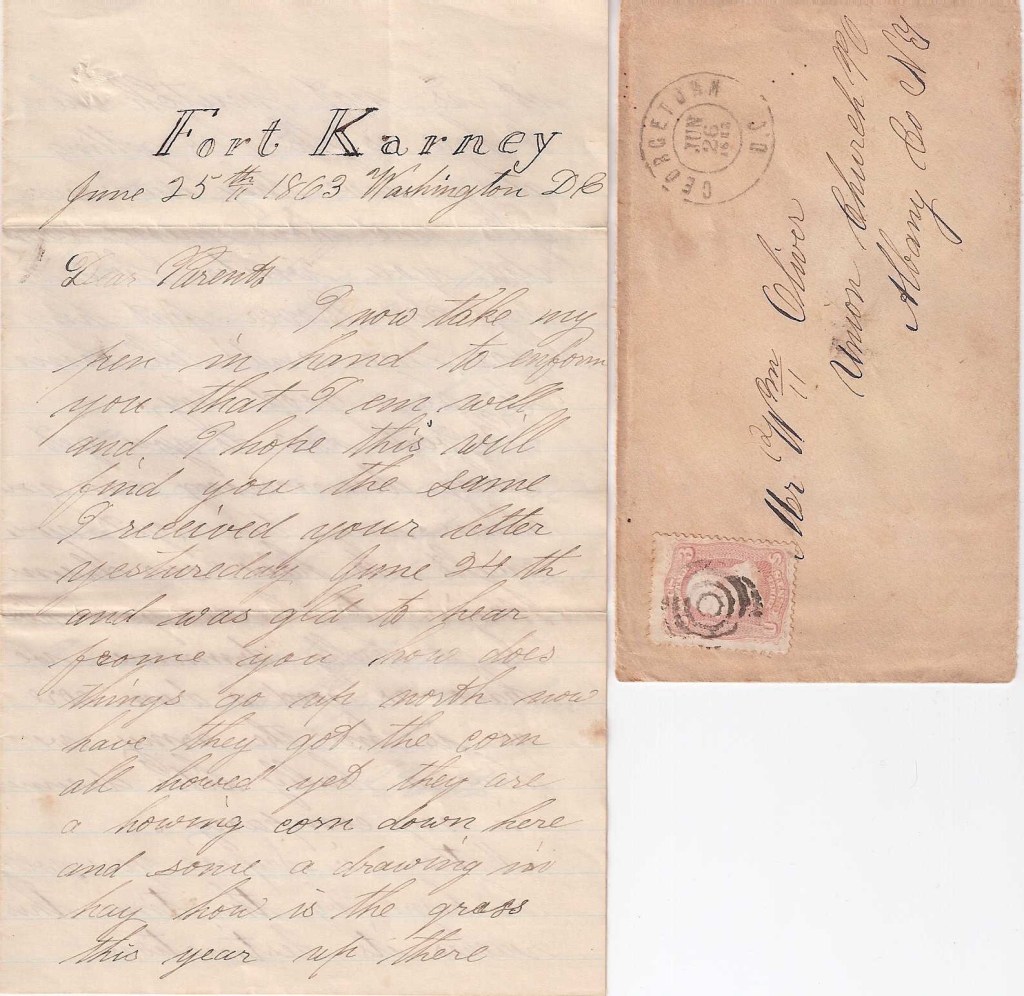 Fort Karney
June 25th 1863 Washington DC
Dear Parents
I now take my
pen in hand to enform
you that I em well
and I hope this will
find you the same
I received your letter
yestureday June 24th
and was gld to hear
frome you how does
things go up north now
have they got the corn
all howed yet they are
a howing corn down here
and some a drawing in
hay how is the grass
this year up there
GEORGETOWN D.C.
JUN
26
1863
Mr Wm Oliver
Union Church PO
Albany Co NY